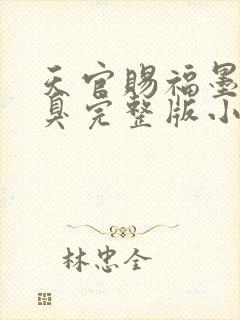 天官赐福墨
臭完整版小
林忠全